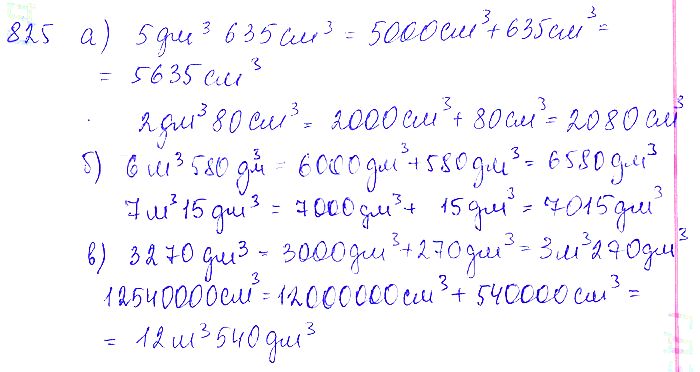 825 а) 5 дм³ 635 см³ = 5000 см³ + 635 см³ =
= 5635 см³
2 дм³ 80 см³ = 2000 см³ + 80 см³ = 2080 см³
б) 6 м³ 580 дм³ = 6000 дм³ + 580 дм³ = 6580 дм³
7 м³ 15 дм³ = 7000 дм³ + 15 дм³ = 7015 дм³
в) 3270 дм³ = 3000 дм³ + 270 дм³ = 3 м³ 270 дм³
12540000 см³ = 12000000 см³ + 540000 см³ =
= 12 м³ 540 дм³